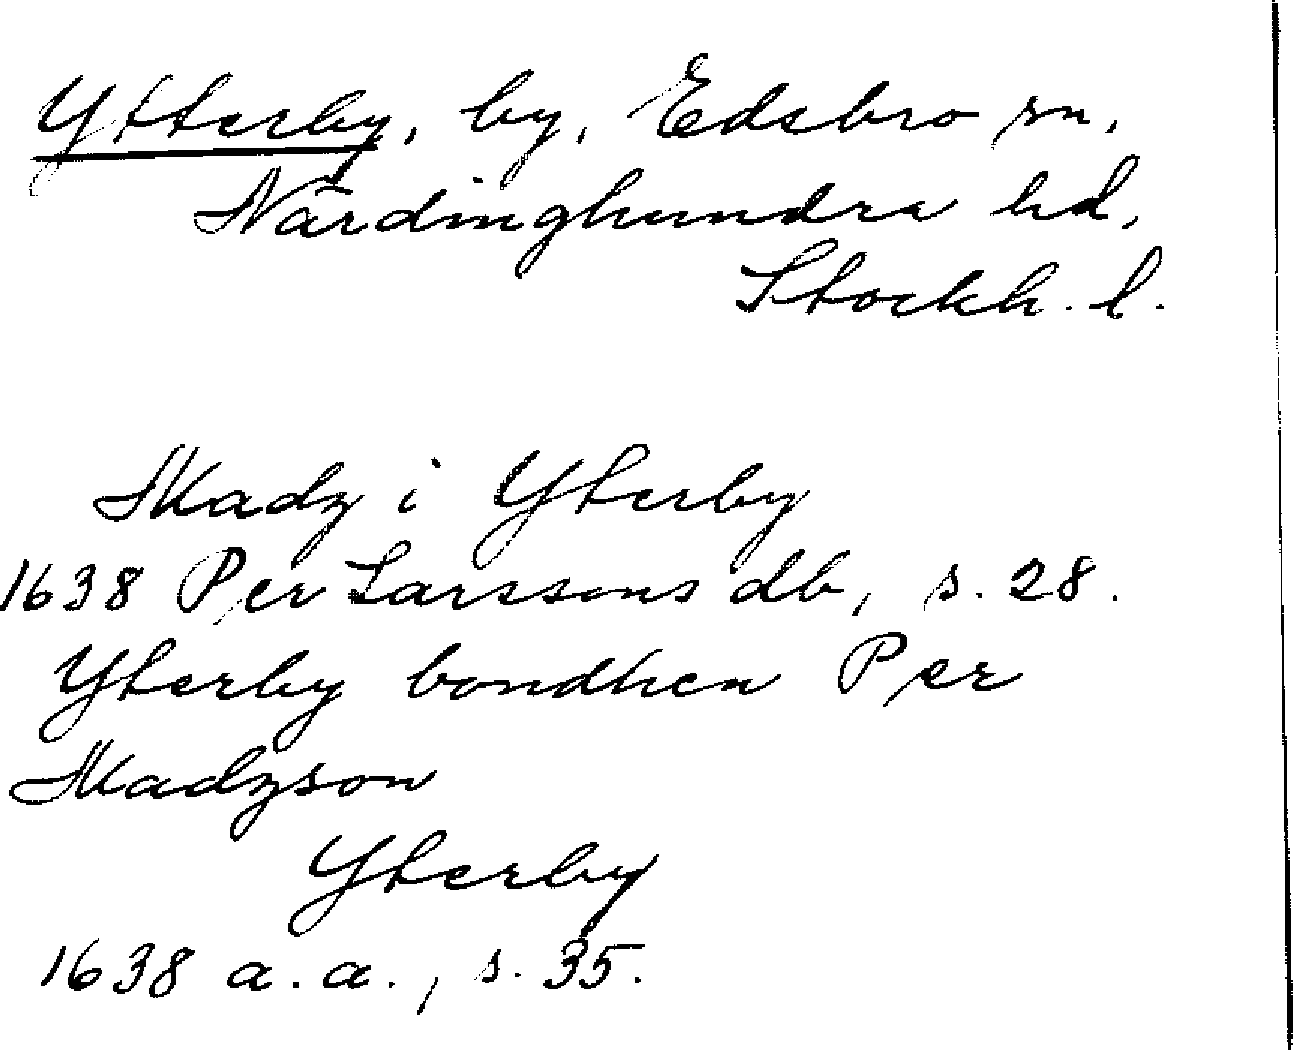 Ytterby, by, Edsbro sn,
Närdinghundra hd,
Stockh. l.
Madz i Yterby
1638 Per Larssons db, s. 28.
Yterby bondhen Per
Madzson
Yterby
1638 a. a., s. 35.